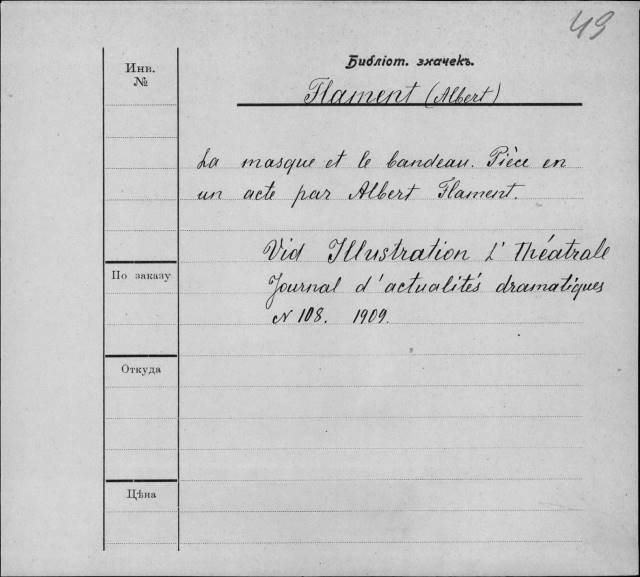 49
Инв.
№
Библіот. значекъ.
Flament (Albert)
La masque et le bandeau. Pièce en
un acte par Albert Flament.
Vid Illustration L' Théatrale
Journal d'actualités dramatiques
N 108. 1909.
По заказу
Откуда
Цѣна